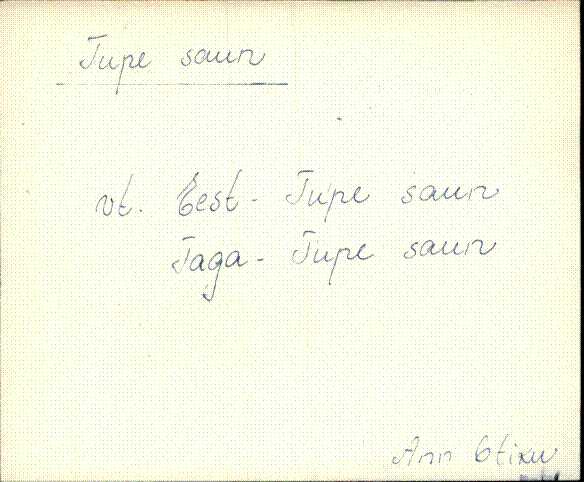 Tupe saun
vt. Eest - Tupe saun
Taga - Tupe saun
Ann